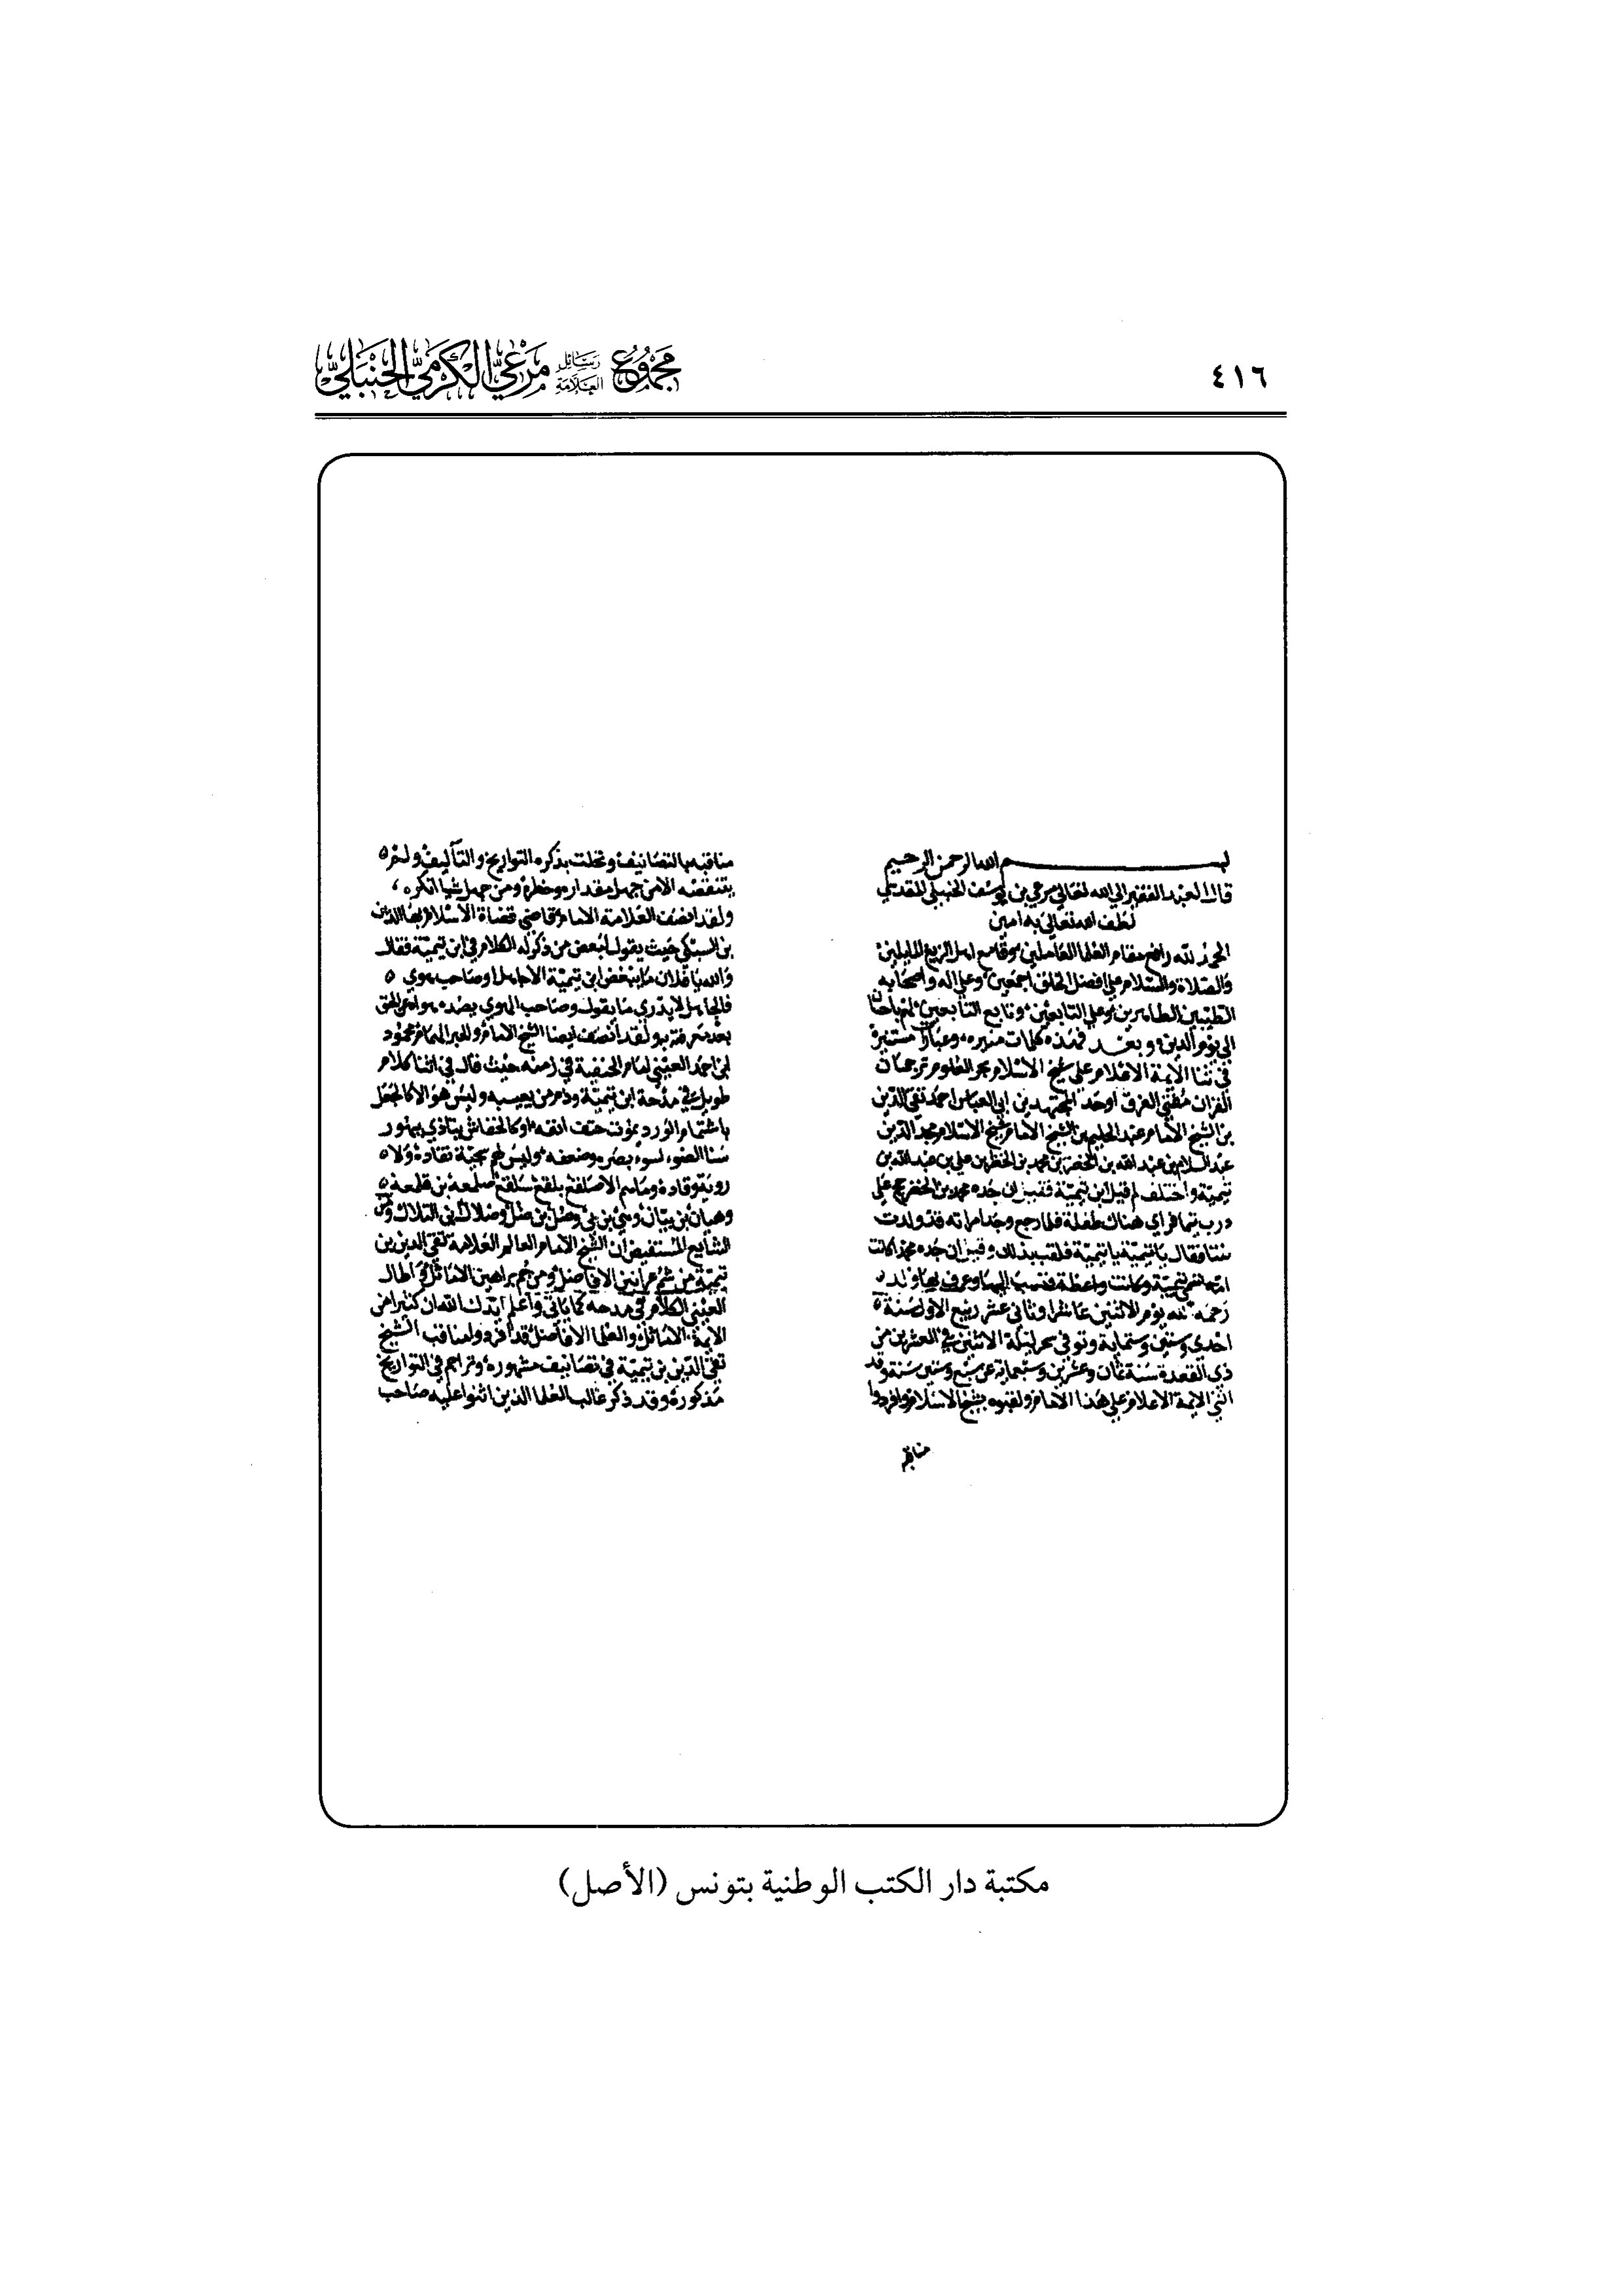 ٤١٦
مجموع رسائل العلامة مرعي الكرمي الحنبلي
بسم الله الرحمن الرحيم
قال العبد الفقير الي الله تعالي مرعي بن يوسف الحنبلي المقدسي
لطف الله تعالي به امين
الحمد لله رافع مقام العلما العاملين وقامع اهل الزيغ
والصلاة والسلام علي افضل الخلق اجمعين وعلي اله واصحابه
الطيبين الطاهرين وعلي التابعين وتابع التابعين لهم باحسان
الي يوم الدين وبعد فهذه كلمات منيره وعبارات مستنيرة
في ثنا الايمة الاعلام علي شيخ الاسلام بحر العلوم ترجمان
القران مفتي الفرق اوحد المجتهدين ابي العباس احمد تقي الدين
بن الشيخ الامام عبد الحليم بن الشيخ الامام شيخ الاسلام مجد الدين
عبد السلام بن عبد الله بن الخضر بن محمد بن الخضر بن علي بن عبد الله بن
تيمية واختلف لم قيل ابن تيمية فقيل ان جده محمد بن الخضر حج علي
درب تيما فراي هناك طفلة فلما رجع وجد امراته قد ولدت
بنتا فقال يا تيمية يا تيمية فلقب بذلك وقيل ان جده محمدا كانت
امه تسمي تيمية وكانت واعظة فنسب اليها وعرف بها ولد
رحمه الله يوم الاثنين عاشر او ثاني عشر ربيع الاول سنة
احدي وستين وستماية وتوفي سحر ليلة الاثنين في العشرين من
ذي القعدة سنة ثمان وعشرين وسبعماية عن سبع وستين سنة وقد
اثني الايمة الاعلام علي هذا الامام ولقبوه بشيخ الاسلام وافردوا
مناقبه
مناقبه بالتصانيف وتحلت بذكره التواريخ والتآليف ولم
يتنقصه الا من جهل مقداره وخطره ومن جهل شيا انكره
ولقد انصف العلامة الامام قاضي قضاة الاسلام بها الدين
بن السبكي حيث يقول لبعض من ذكر له الكلام في ابن تيمية فقال
والله يا فلان ما يبغض ابن تيمية الا جاهل او صاحب هوي
فالجاهل لا يدري ما يقول وصاحب الهوي يصده هواه عن الحق
بعد معرفته به ولقد انصف ايضا الشيخ الامام والحبر الهمام محمود
ابن احمد العيني امام الحنفية في زمنه حيث قال في اثنا كلام
طويل في مدحة ابن تيمية وذم من يعيبه وليس هو الا كالجعل
باشتمام الورد يموت حتف انفه او كالخفاش يتاذي ببهور
سنا الضوء لسوء بصره وضعفه وليس لهم سجية نقادة ولا
روية وقادة وما هم الا صلقع بلقع سلقع صلمعة بن قلمعة
وهيان بن بيان وهي بن بي وضل بن ضل وضلال بن التلال ومن
الشايع المستفيض ان الشيخ الامام العالم العلامة تقي الدين بن
تيمية من شم عرانين الافاضل ومن جم براهين الاماثل واطال
العيني الكلام في مدحه كما ياتي واعلم ايدك الله ان كثيرا من
الايمة الاماثل والعلما الافاضل قد افردوا مناقب الشيخ
تقي الدين بن تيمية في تصانيف مشهوره وتراجم في التواريخ
مذكورة وقد ذكر غالب العلما الذين اثنوا عليه صاحب
مكتبة دار الكتب الوطنية بتونس (الأصل)